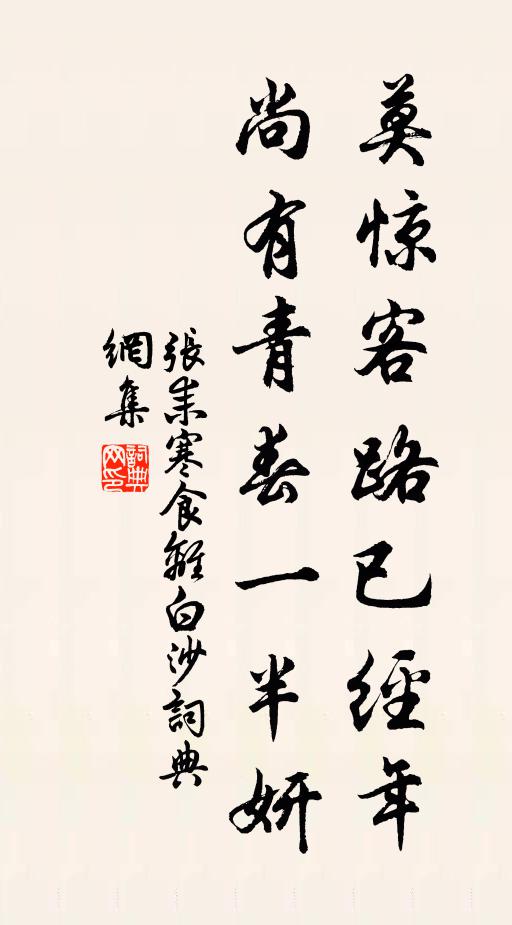 莫惊客路已經年
尚有青春一半妍
張耒寒食離白沙詞典
網集
詞典網印